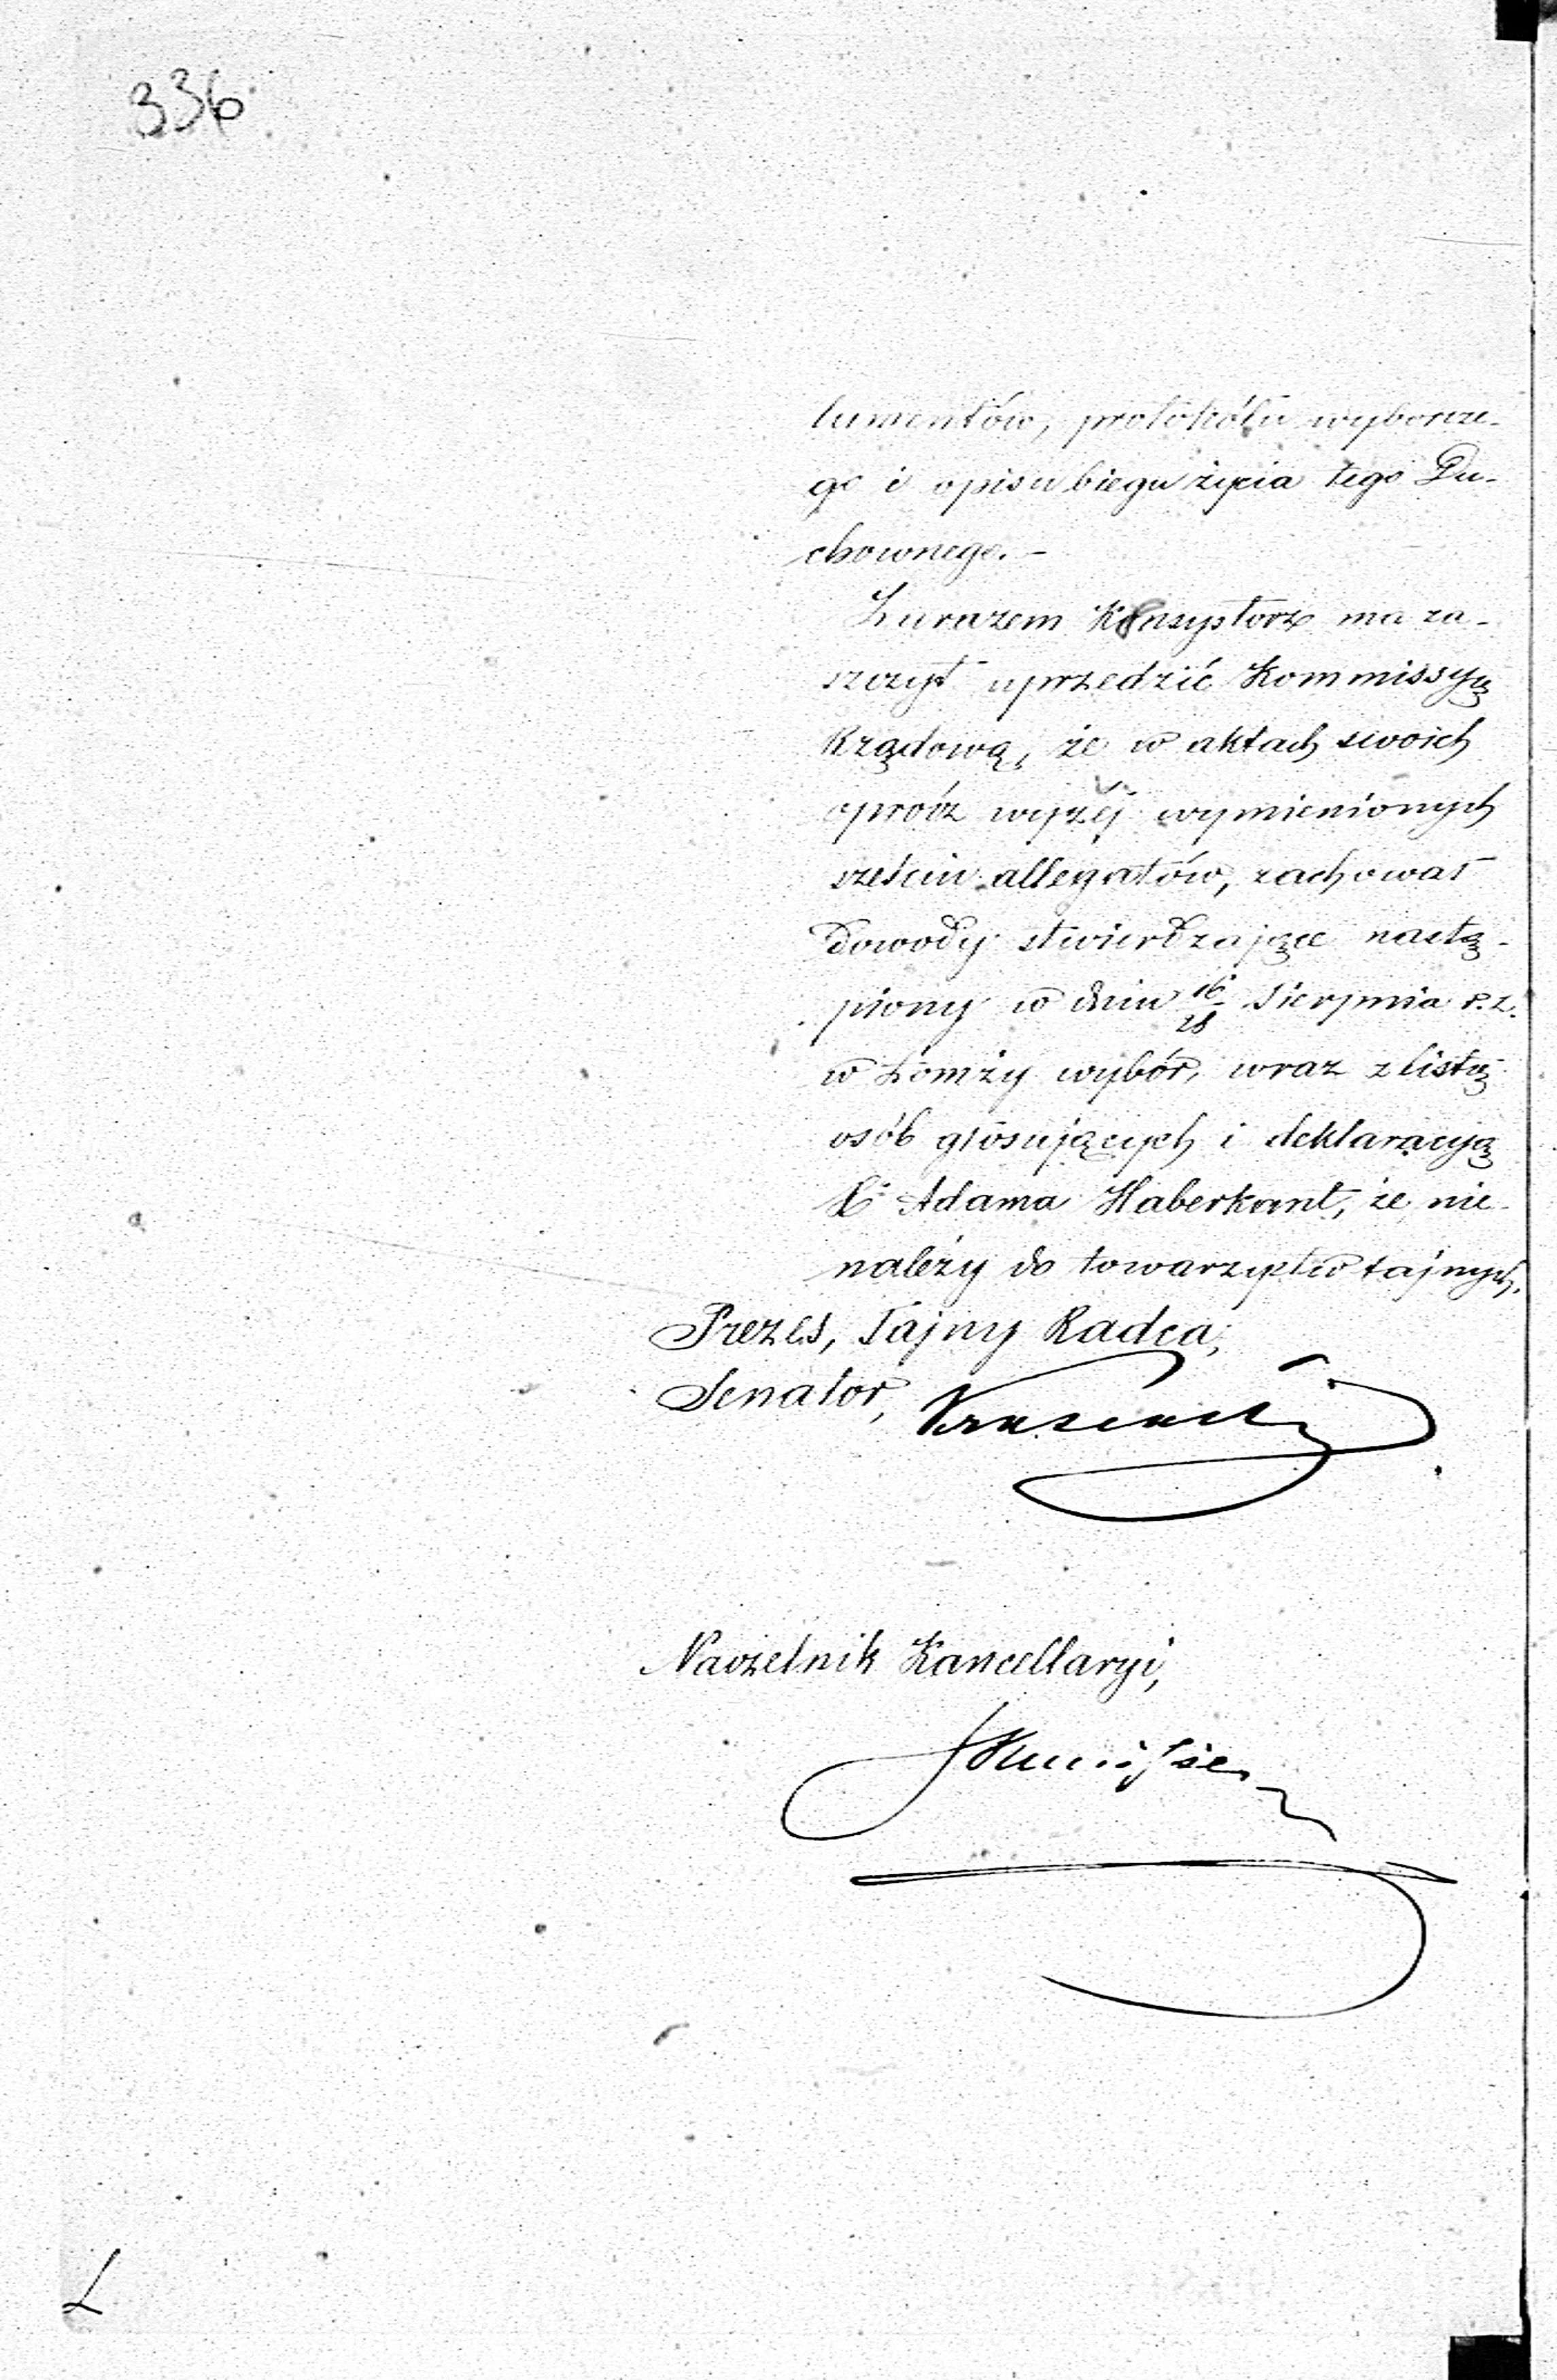 336
lumentów, protokółu wyborcze-
go i opisu biegu życia tego Du-
chownego. -
Zarazem Konsystorz ma za-
szczyt uprzedzić Kommissyą
Rządową, że w aktach swoich
oprócz wyżéj wymienionych
sześciu allegatów, zachował
dowody stwierdzające nastą-
piony w dniu 16/28 Sierpnia r.z.
w Łomży wybór, wraz z listą
osób głosujących i deklaracyą
X. Adama Haberkant, że nie-
należy do towarzystw tajnych.
Prezes, Tajny Radca,
Senator,
Naczelnik Kancellaryi,
L